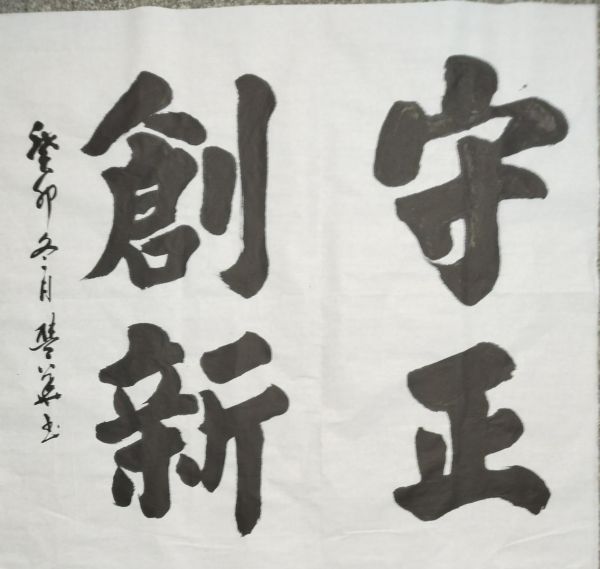 守正
創新
癸卯冬月慧華书